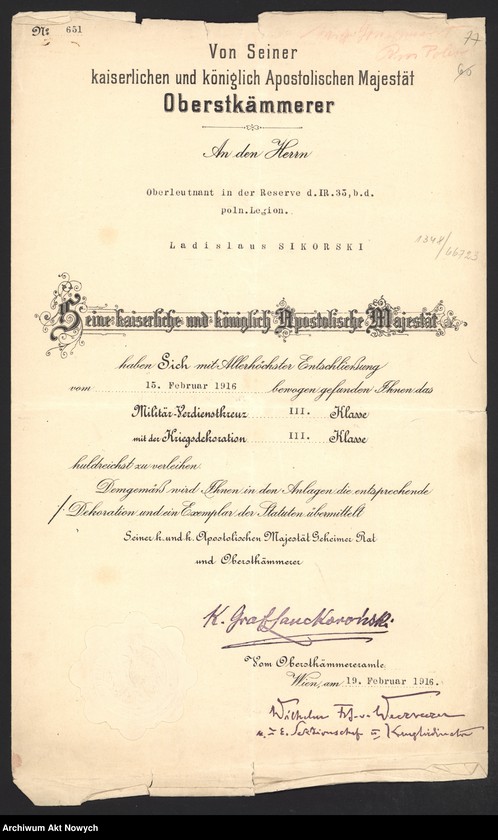 № 651
77
Von Seiner
kaiserlichen und königlich Apostolischen Majestät
Oberstkämmerer
An den Herrn
Oberleutnant in der Reserve d.IR.33,b.d.
poln.Legion.
Ladislaus SIKORSKI
1348/66723
Seine kaiserliche und königlich Apostolische Majestät
haben Sich mit Allerhöchster Entschließung
vom 15. Februar 1916 bewogen gefunden Ihnen das
Militär-Verdienstkreuz III. Klasse
mit der Kriegsdekoration III. Klasse
huldreichst zu verleihen.
Demgemäß wird Ihnen in den Anlagen die entsprechende
/. Dekoration und ein Exemplar der Statuten übermittelt.
Seiner k. und k. Apostolischen Majestät Geheimer Rat
und Oberstkämmerer
K. Graf Lanckoroński.
Vom Oberstkämmereramte.
Wien, am 19. Februar 1916.
Wilhelm Fh. v.
Sektionschef u. Kanzleidirector
Archiwum Akt Nowych